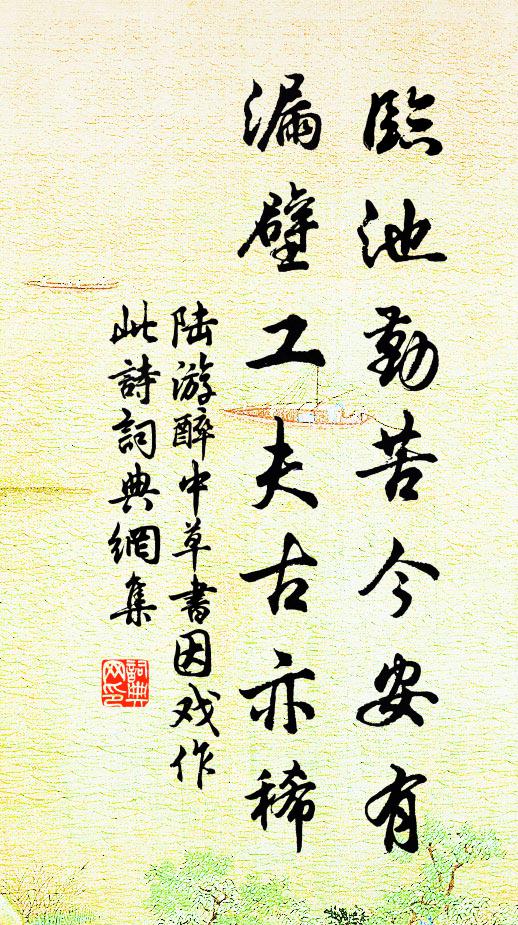 臨池勤苦今安有
漏壁工夫古亦稀
陆游醉中草書因戏作
此詩詞典網集
詞典网印